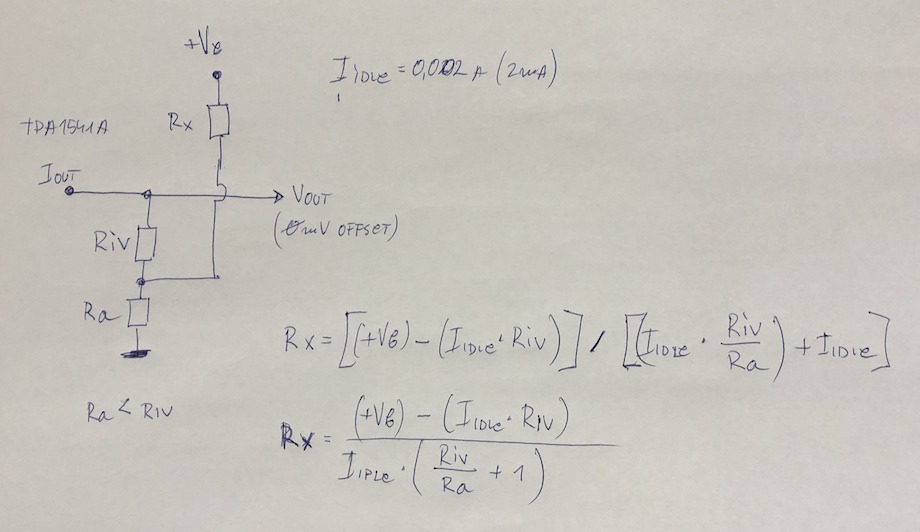 +VB
I IDLE = 0,002 A (2mA)
Rx
TDA1541A
IOUT
VOUT
(0mV OFFSET)
Riv
Ra
Rx = [(+VB) - (IIDLE · Riv)] / [(IIDLE · Riv/Ra) + IIDLE]
Ra < RIV
Rx = (+VB) - (IIDLE · RIV) / IIDLE · (Riv/Ra + 1)